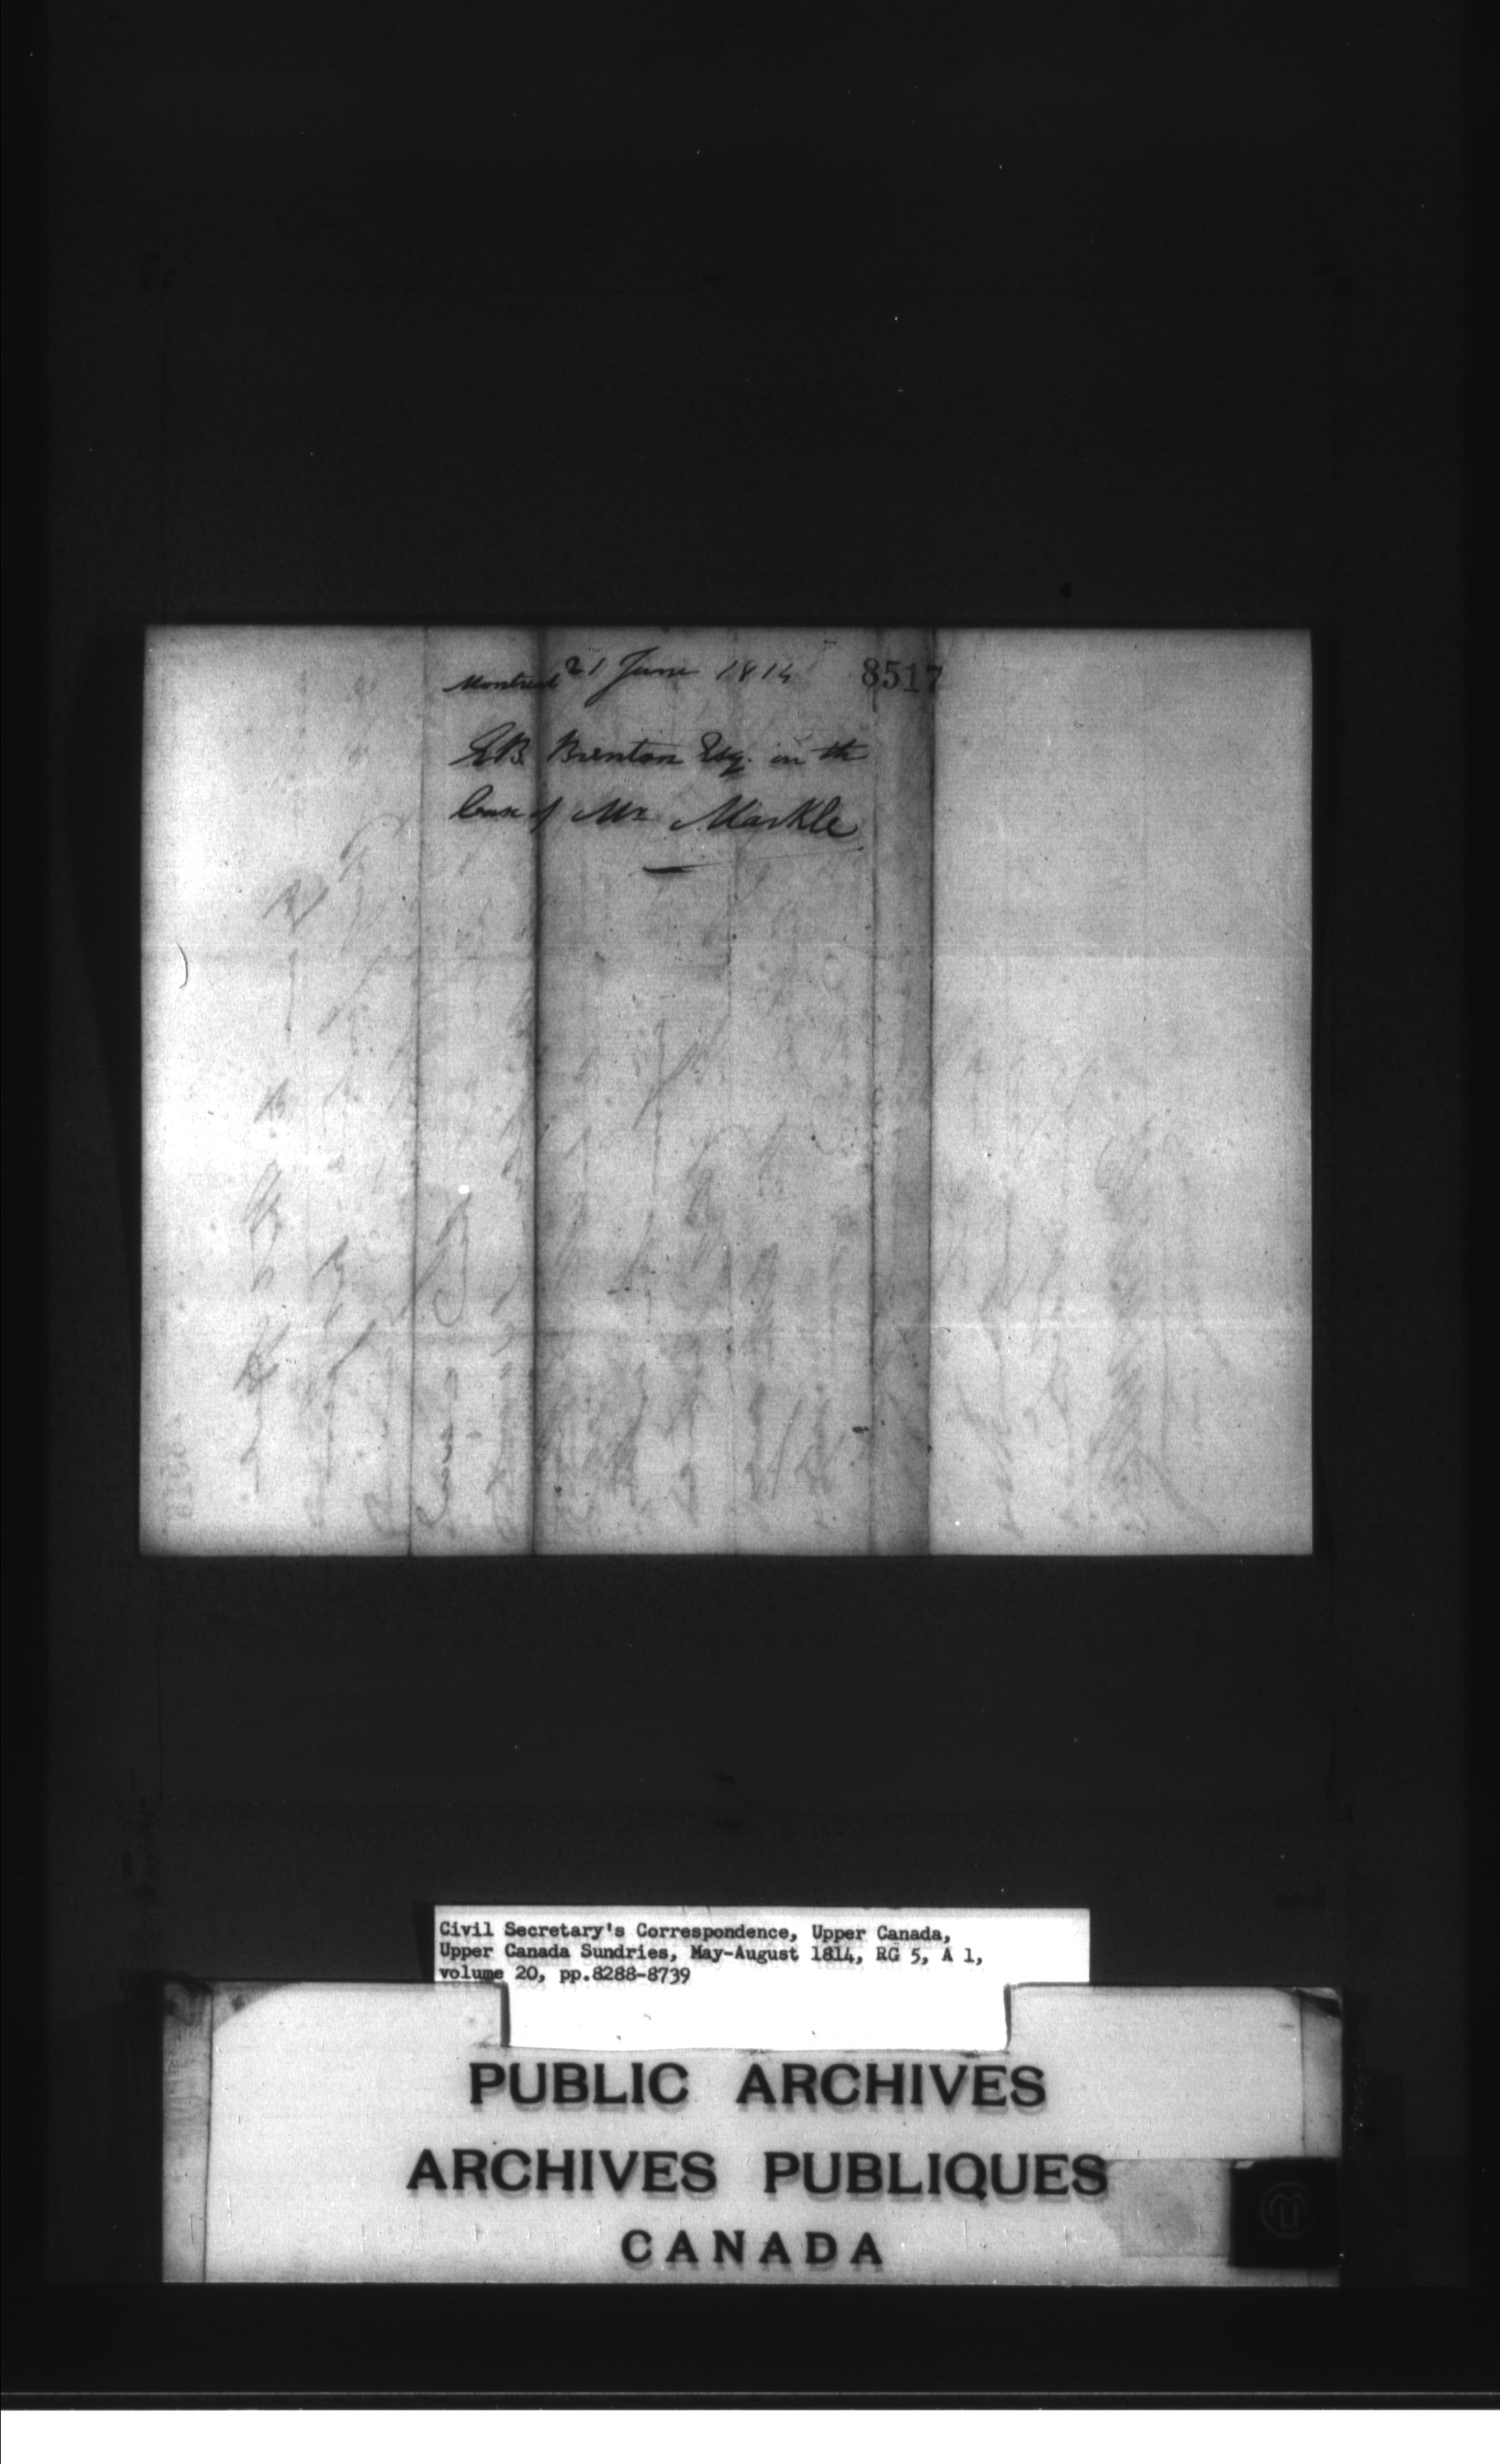 Montreal 21 June 1814
8517
E B. Brenton Esq. in the
Case of Mr Markle
Civil Secretary's Correspondence, Upper Canada,
Upper Canada Sundries, May-August 1814, RG 5, A 1,
volume 20, pp.8288-8739
PUBLIC ARCHIVES
ARCHIVES PUBLIQUES
CANADA